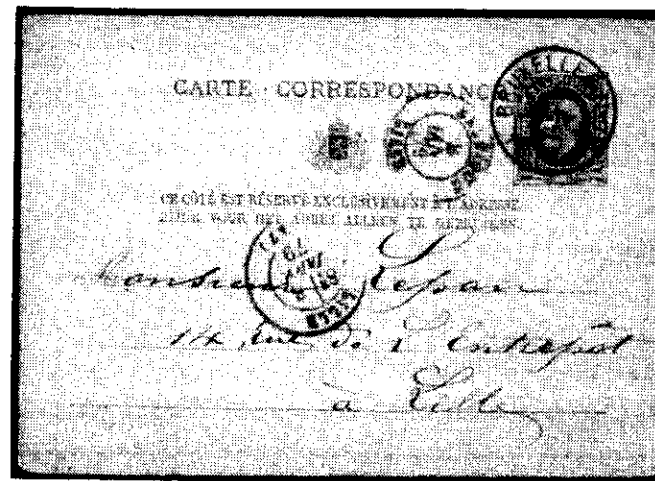 CARTE · CORRESPONDANCE
BRUXELLES
CE CÔTÉ EST RÉSERVÉ EXCLUSIVEMENT À L'ADRESSE
ZIJDE VOOR HET ADRES ALLEEN TE
LILLE
Monsieur Lepan
14 Rue de L'Entrepôt
à Lille